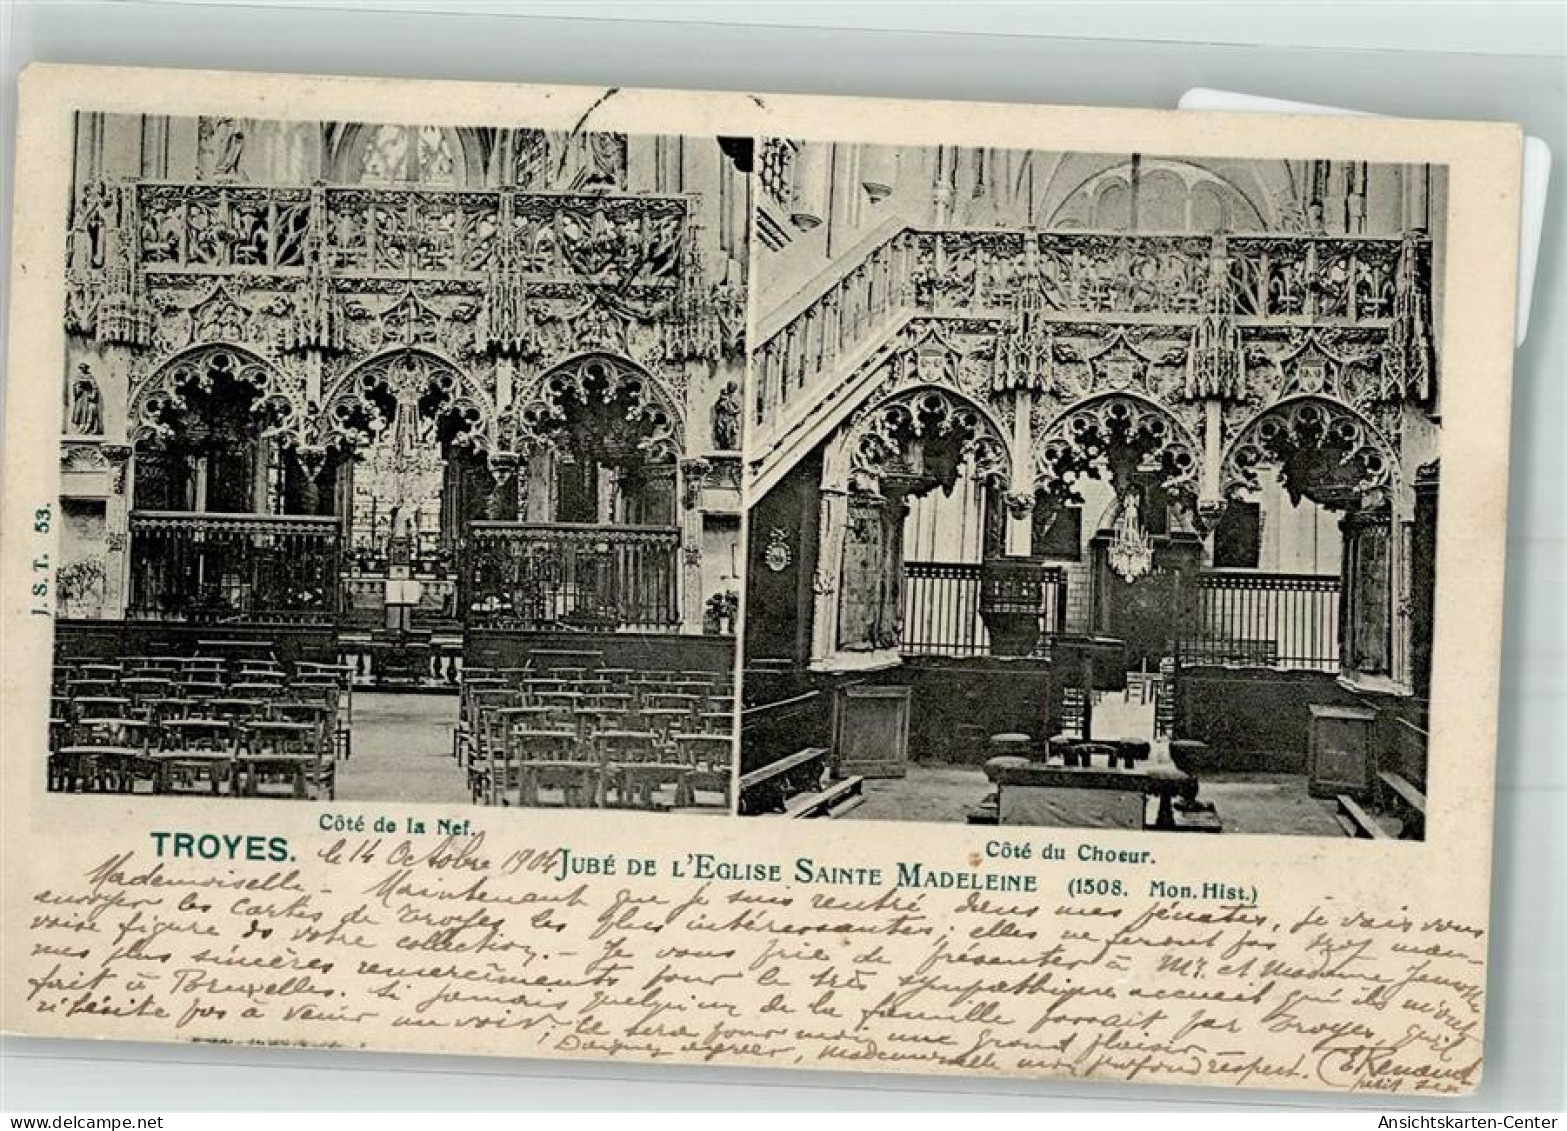 J.S.T. 53.
Côté de la Nef.
Côté du Choeur.
TROYES. le 14 Octobre 1904
JUBÉ DE L'EGLISE SAINTE MADELEINE (1508. Mon. Hist.)
Mademoiselle - Maintenant que je suis rentré dans mes pénates, je vais vous
envoyer les cartes de Troyes les plus intéressantes; elles ne feront pas trop mau-
vaise figure ds votre collection. - Je vous prie de présenter à Mr. et Madame
mes plus sincères remerciments pour le très sympathique accueil qu'ils m'ont
fait à Bruxelles. Si jamais quelqu'un de la famille passait par Troyes, qu'il
n'hésite pas à venir me voir; ce sera pour moi une grand plaisir
Daignez agréer, mademoiselle mon profond respect. E Renaud
petit
delcampe.net
Ansichtskarten-Center